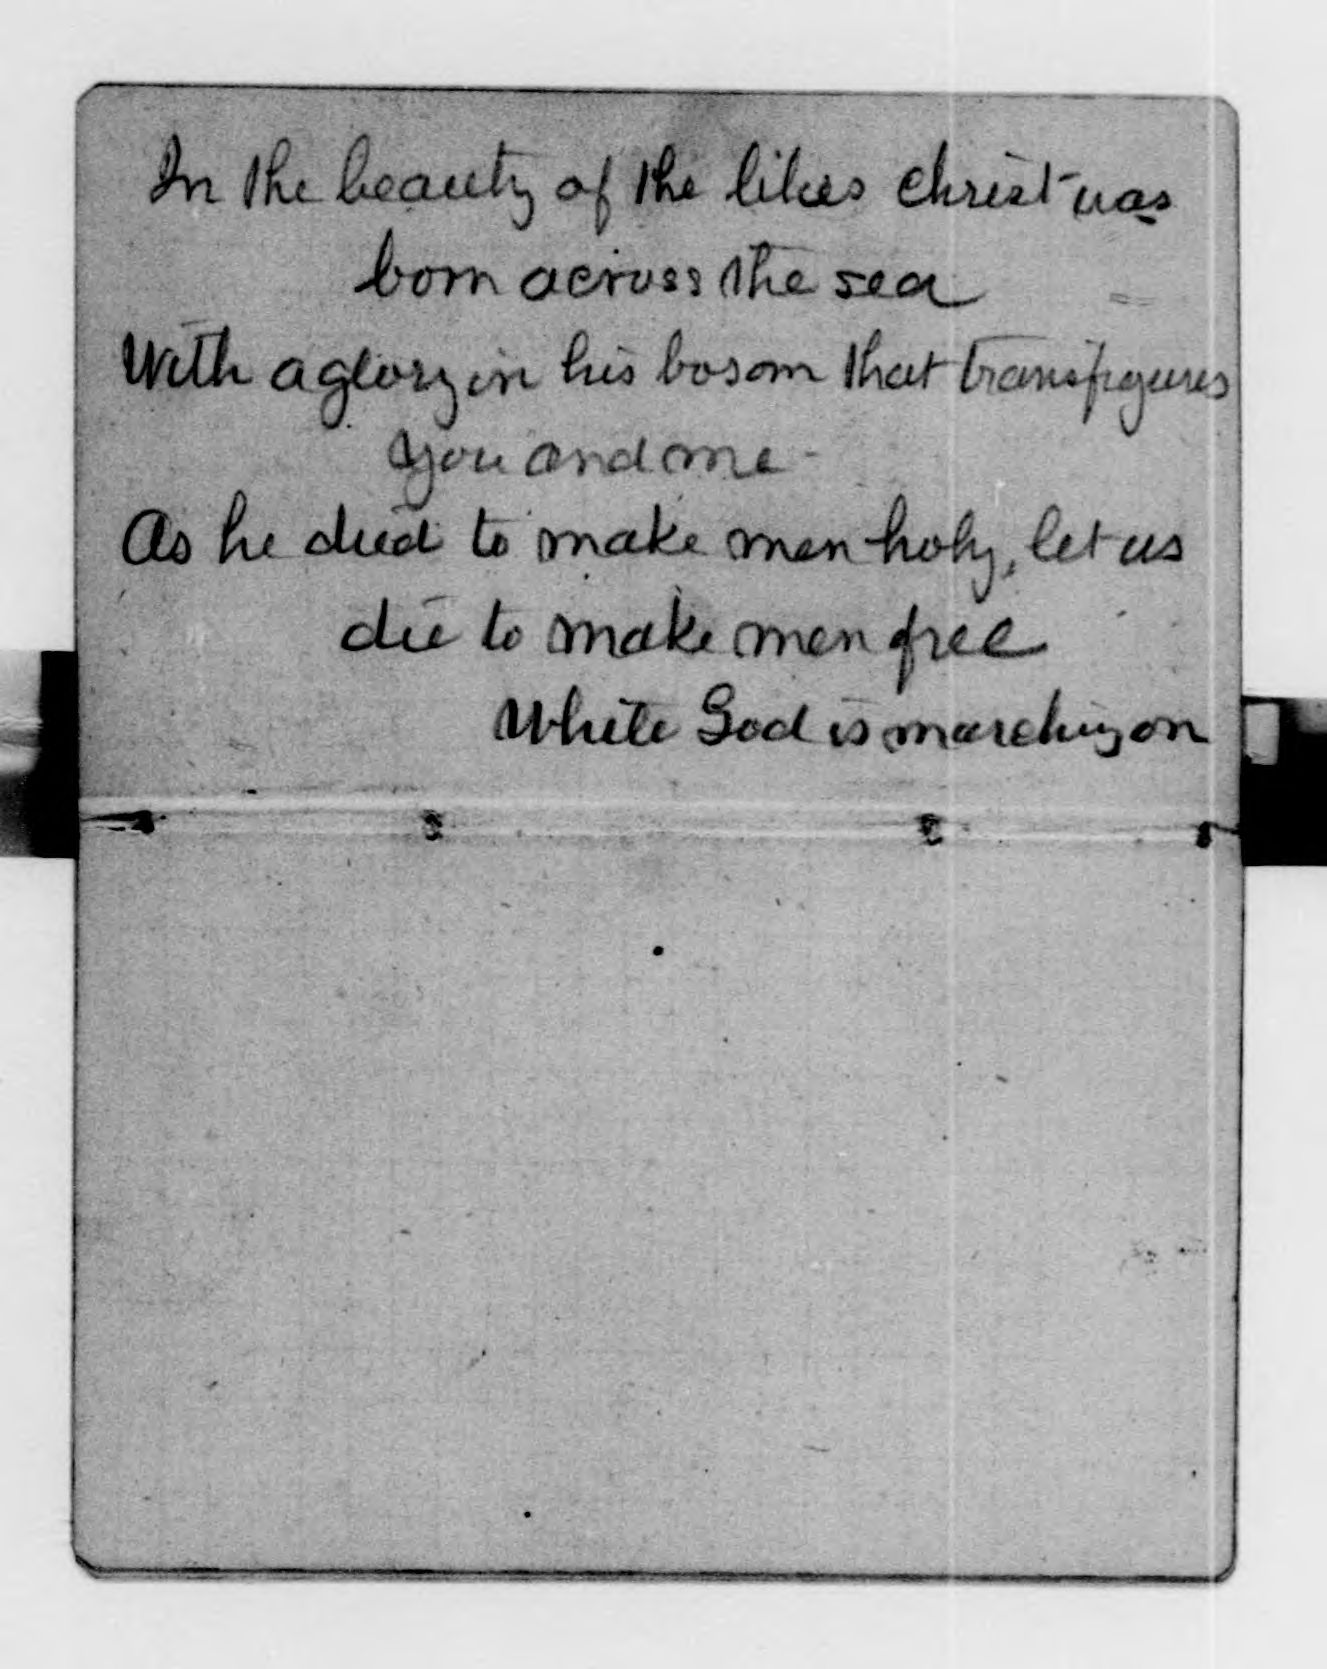 In the beauty of the lilies Christ was
born across the sea
With a glory in his bosom that transfigures
you and me -
As he died to make men holy, let us
die to make men free
While God is marching on